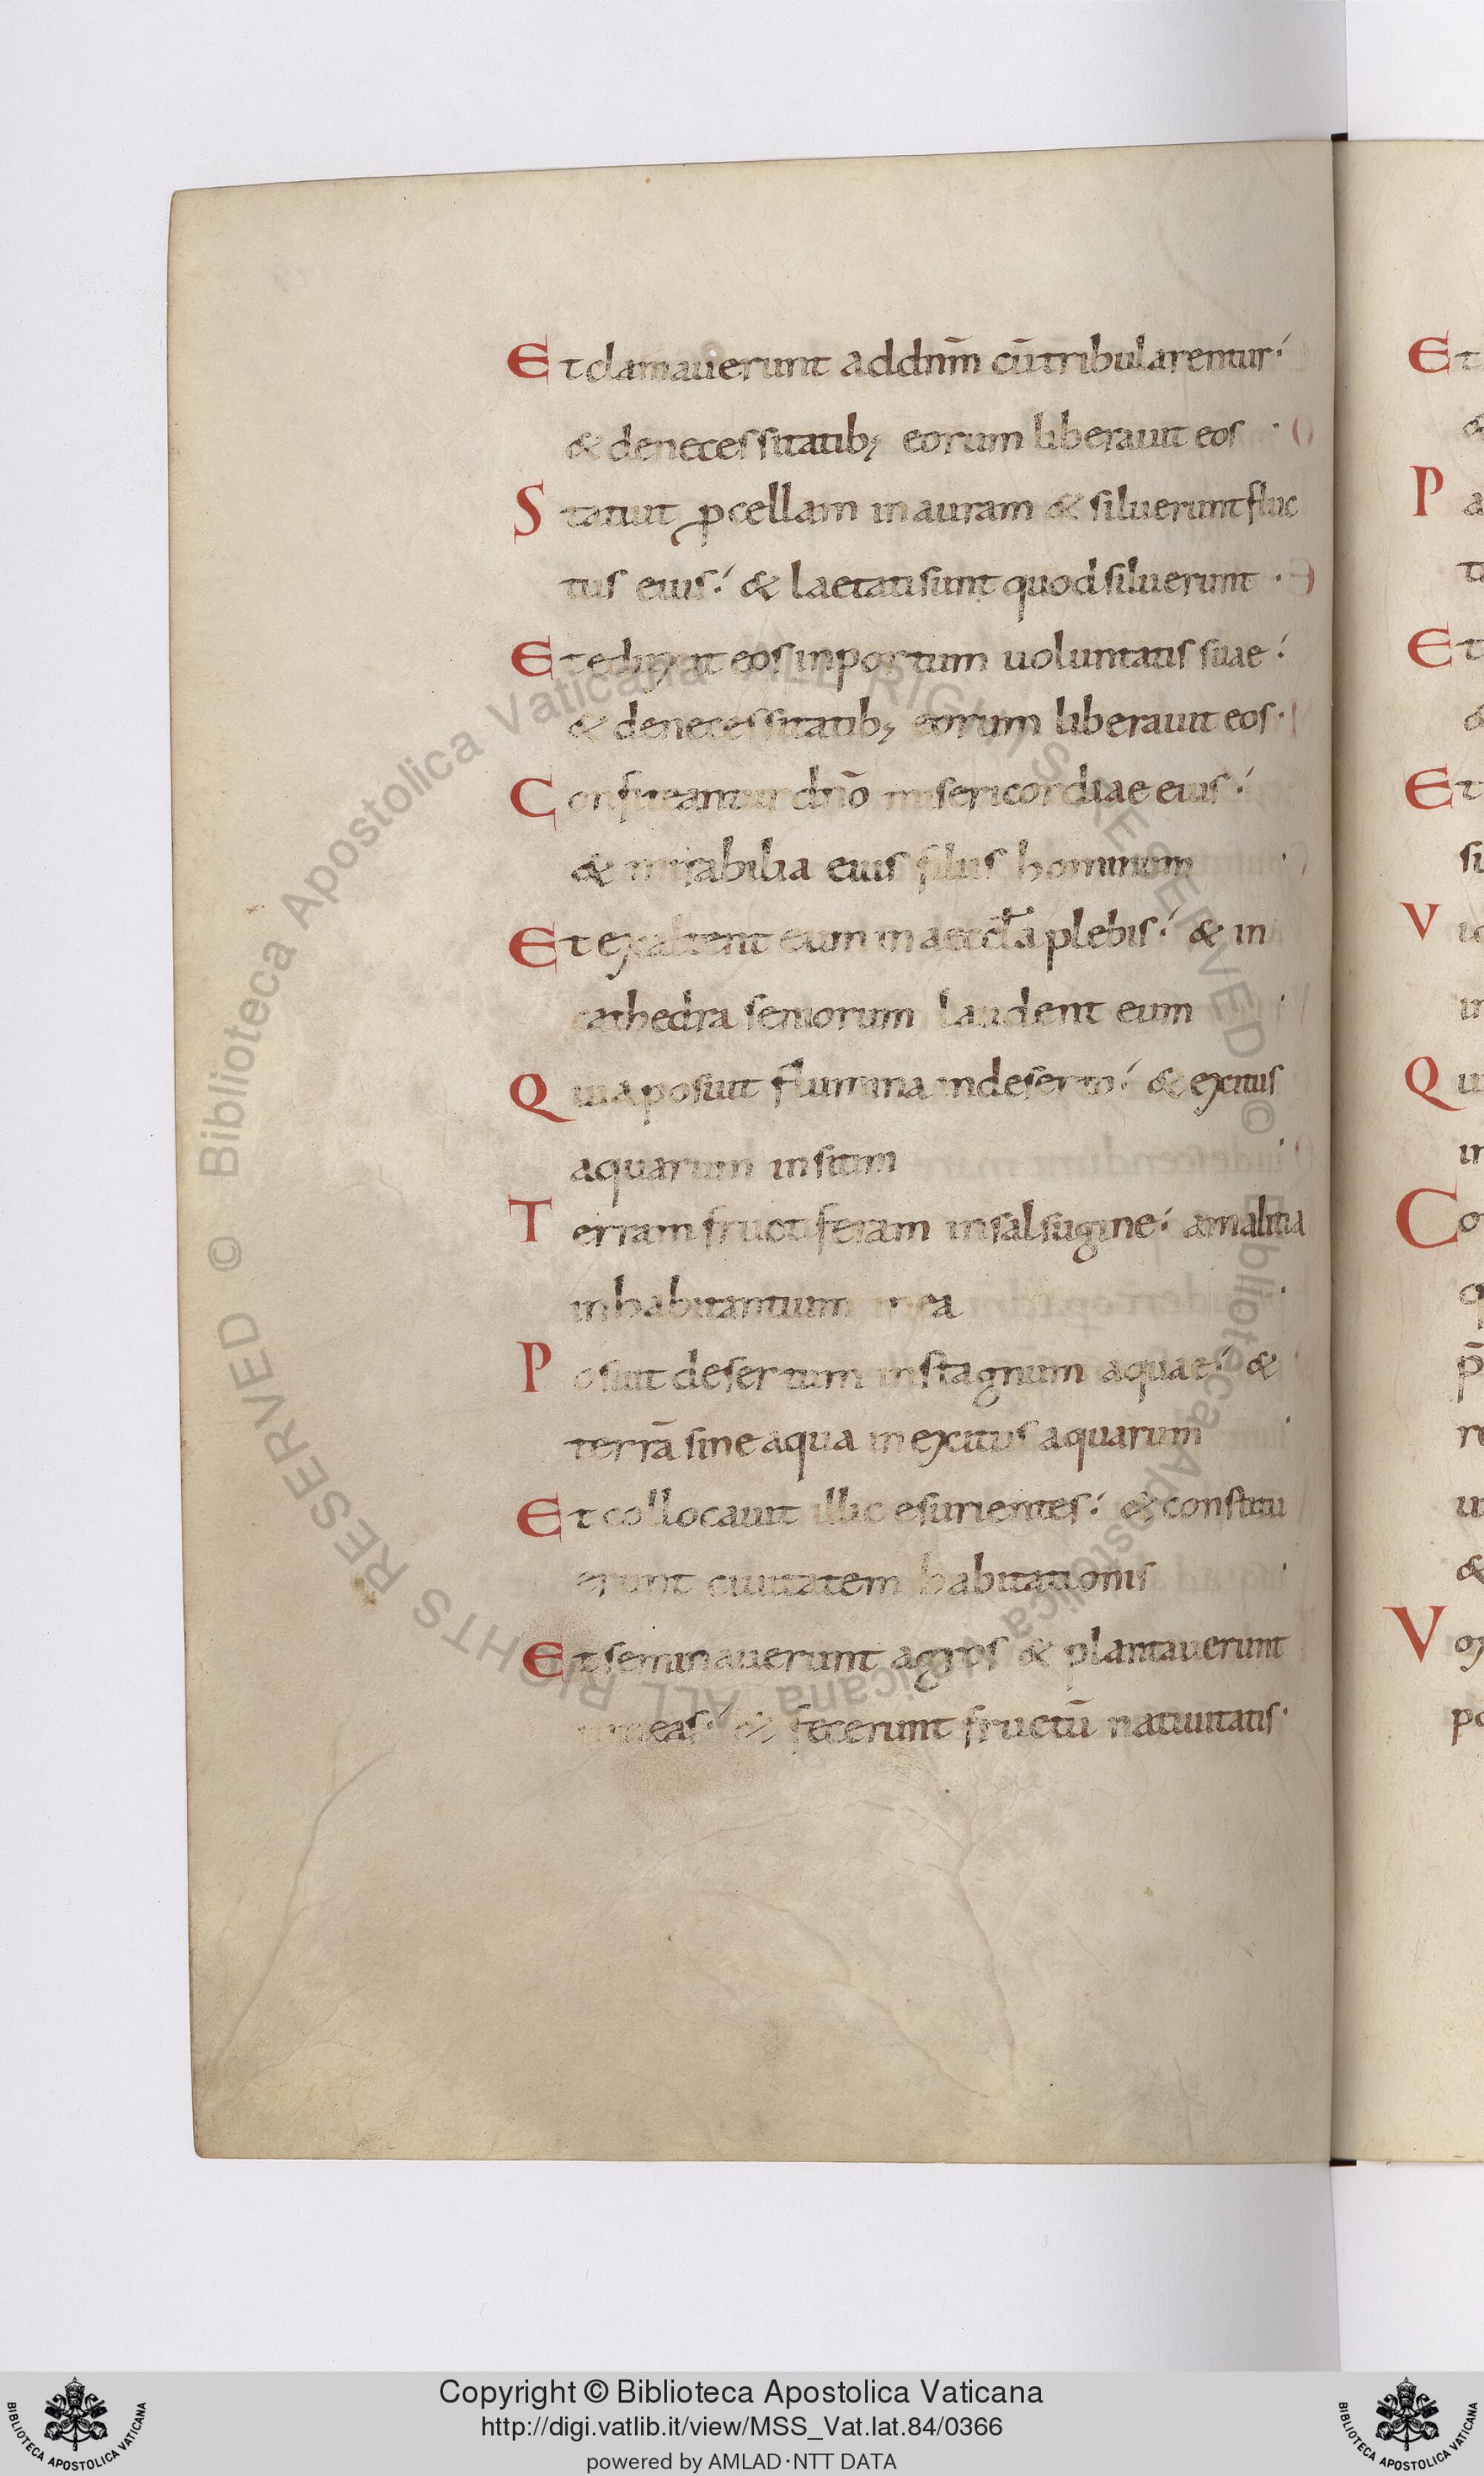 Et clamauerunt ad dnm̄ cū tribularentur:
& denecessitatib; eorum liberauit eos ·
Statuit ꝓcellam in auram & siluerunt fluc
tus eius: & laetati sunt quod siluerunt ·
Et eduxit eos in portum uoluntatis suae:
& denecessitatib; eorum liberauit eos·
Confiteantur dnō misericordiae eius:
& mirabilia eius filiis hominum ·
Et exaltent eum in aeccl̄a plebis: & in
cathedra seniorum laudent eum ·
Quia posuit flumina in deserto: & exitus
aquarum in sitim ·
Terram fructiferam in salsugine: a malitia
inhabitantium in ea ·
Posuit desertum in stagnum aquae: &
terrā sine aqua in exitus aquarum ·
Et collocauit illic esurientes: & constitu
erunt ciuitatem habitationis ·
Et seminauerunt agros & plantauerunt
uineas: & fecerunt fructū natiuitatis·
© Biblioteca Apostolica Vaticana ALL RIGHTS RESERVED
© Biblioteca Apostolica Vaticana ALL RIGHTS RESERVED
BIBLIOTECA APOSTOLICA VATICANA
Copyright © Biblioteca Apostolica Vaticana
http://digi.vatlib.it/view/MSS_Vat.lat.84/0366
powered by AMLAD·NTT DATA
BIBLIOTECA APOSTOLICA VATICANA